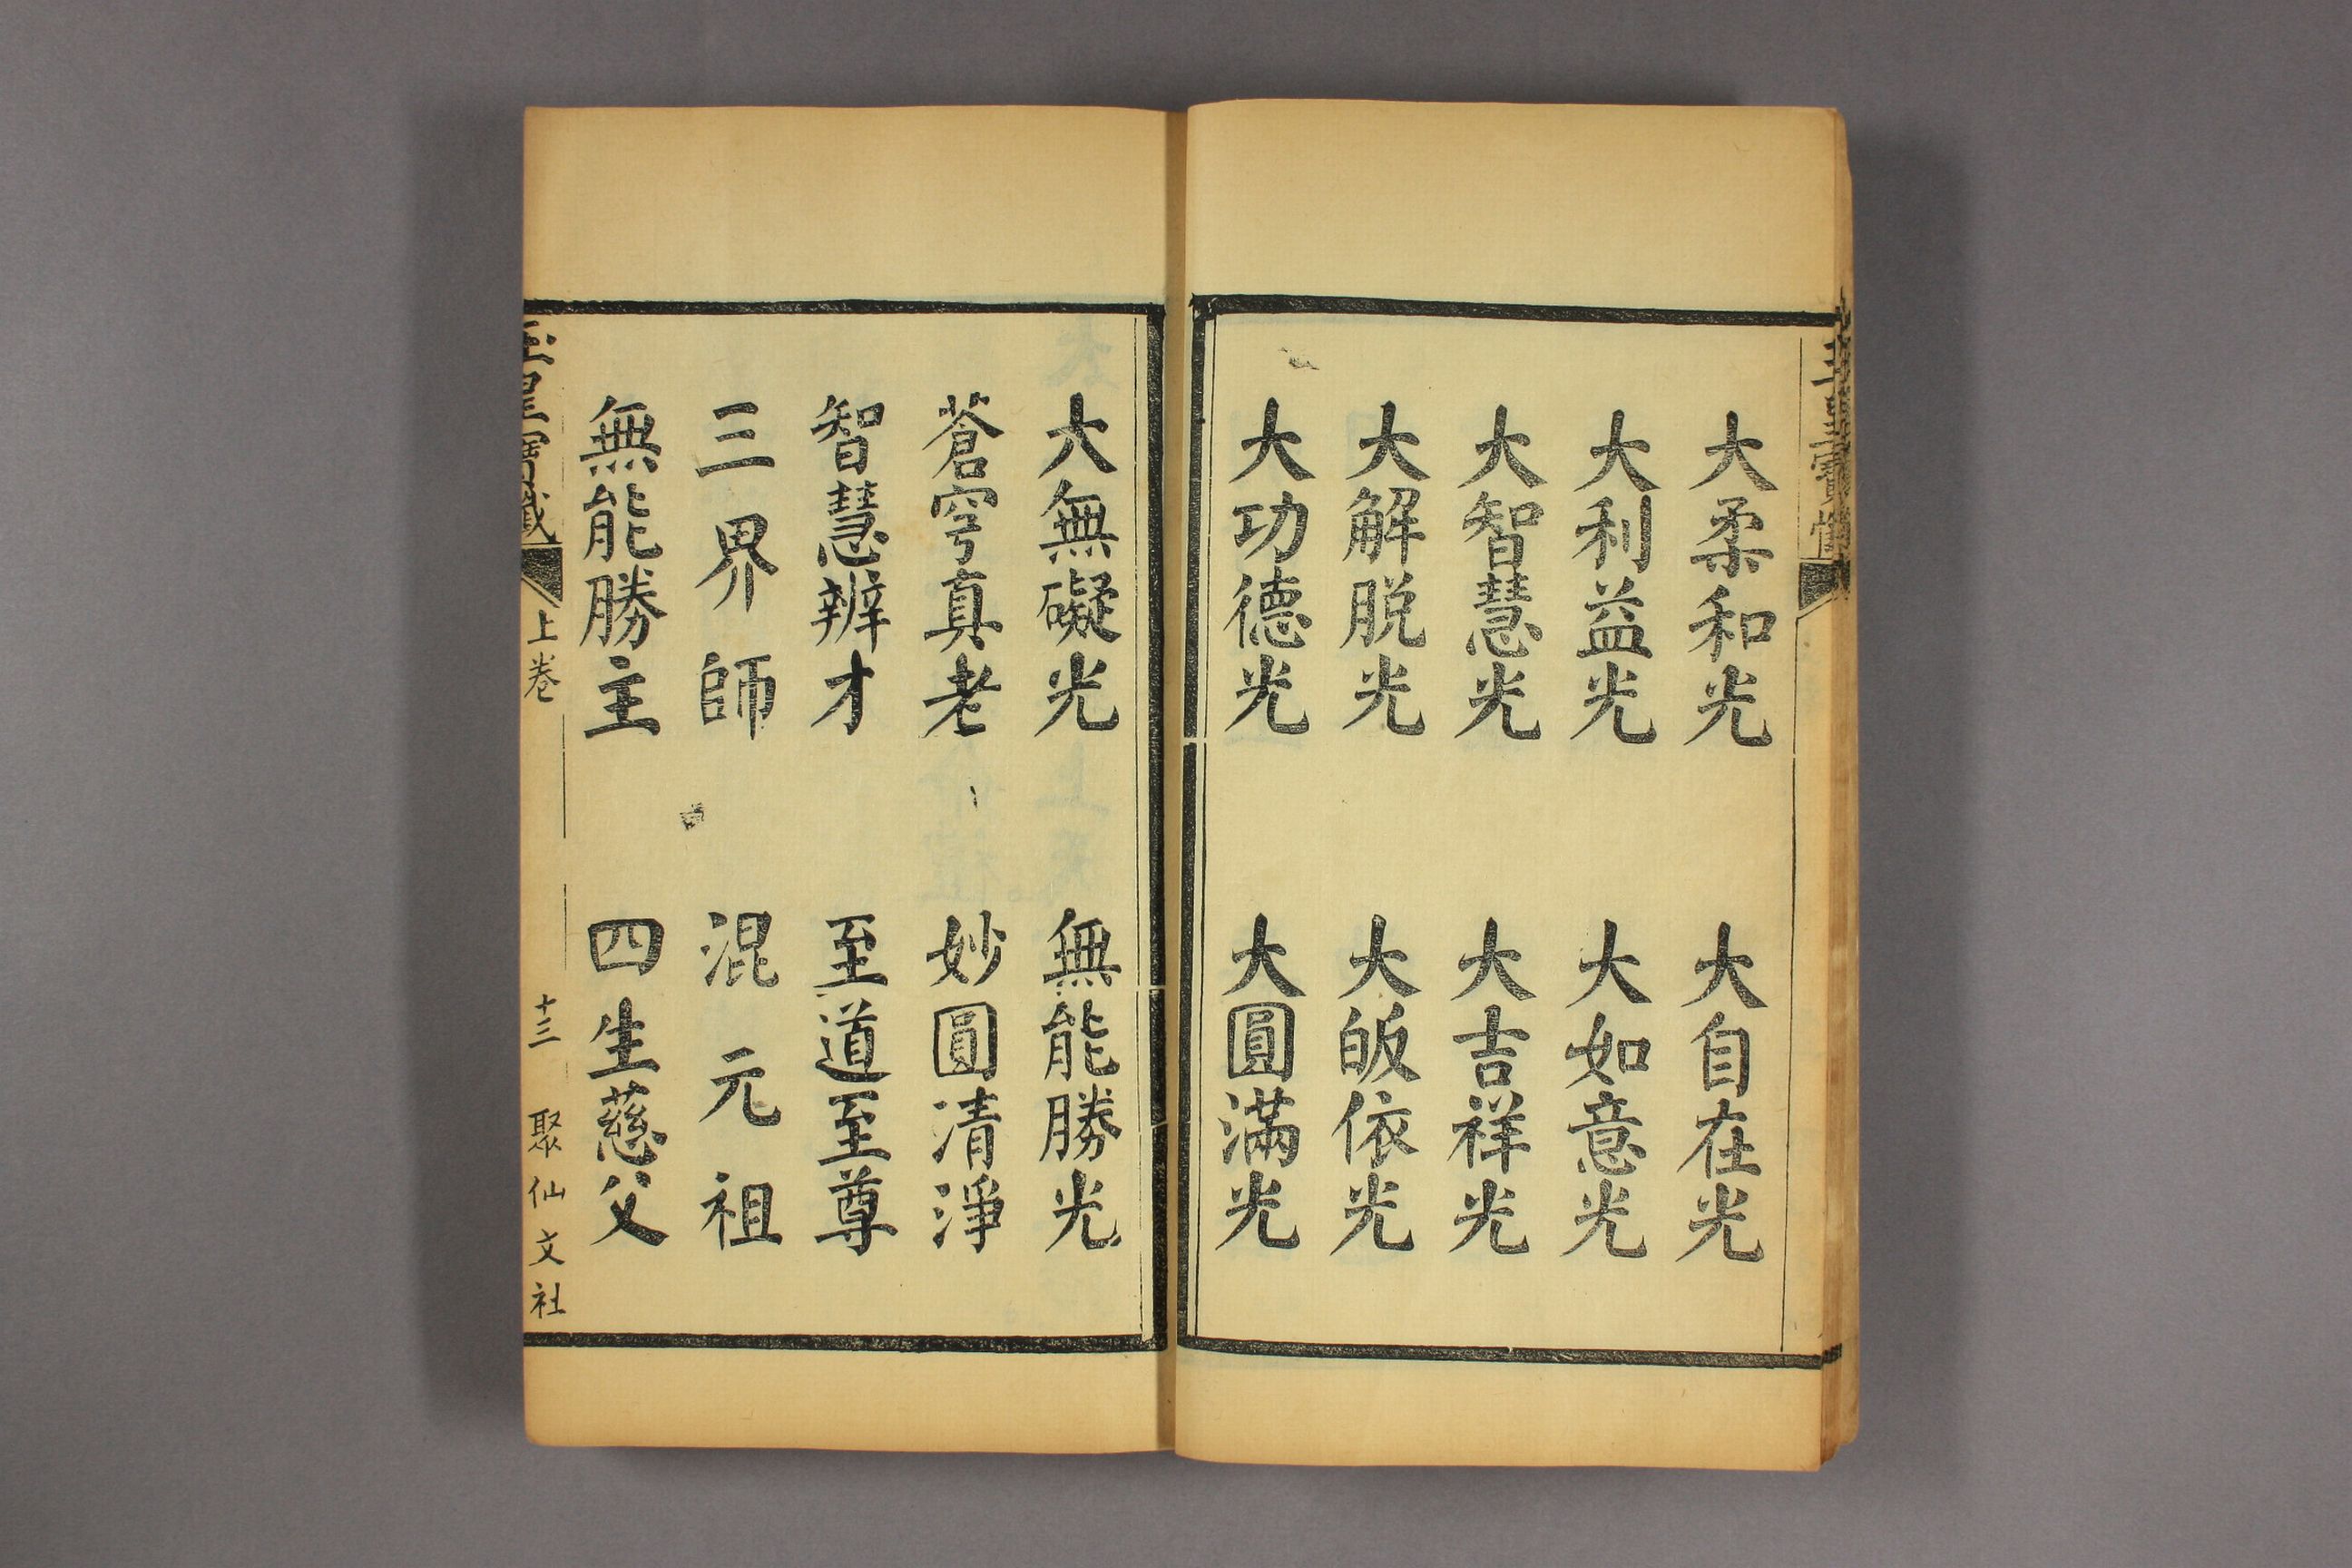 大柔和光　大自在光
大利益光　大如意光
大智慧光　大吉祥光
大解脱光　大皈依光
大功德光　大圓滿光
大無礙光　無能勝光
蒼穹真老　妙圓清淨
智慧辨才　至道至尊
三界師　混元祖
無能勝主　四生慈父
上卷　十三　聚仙文社